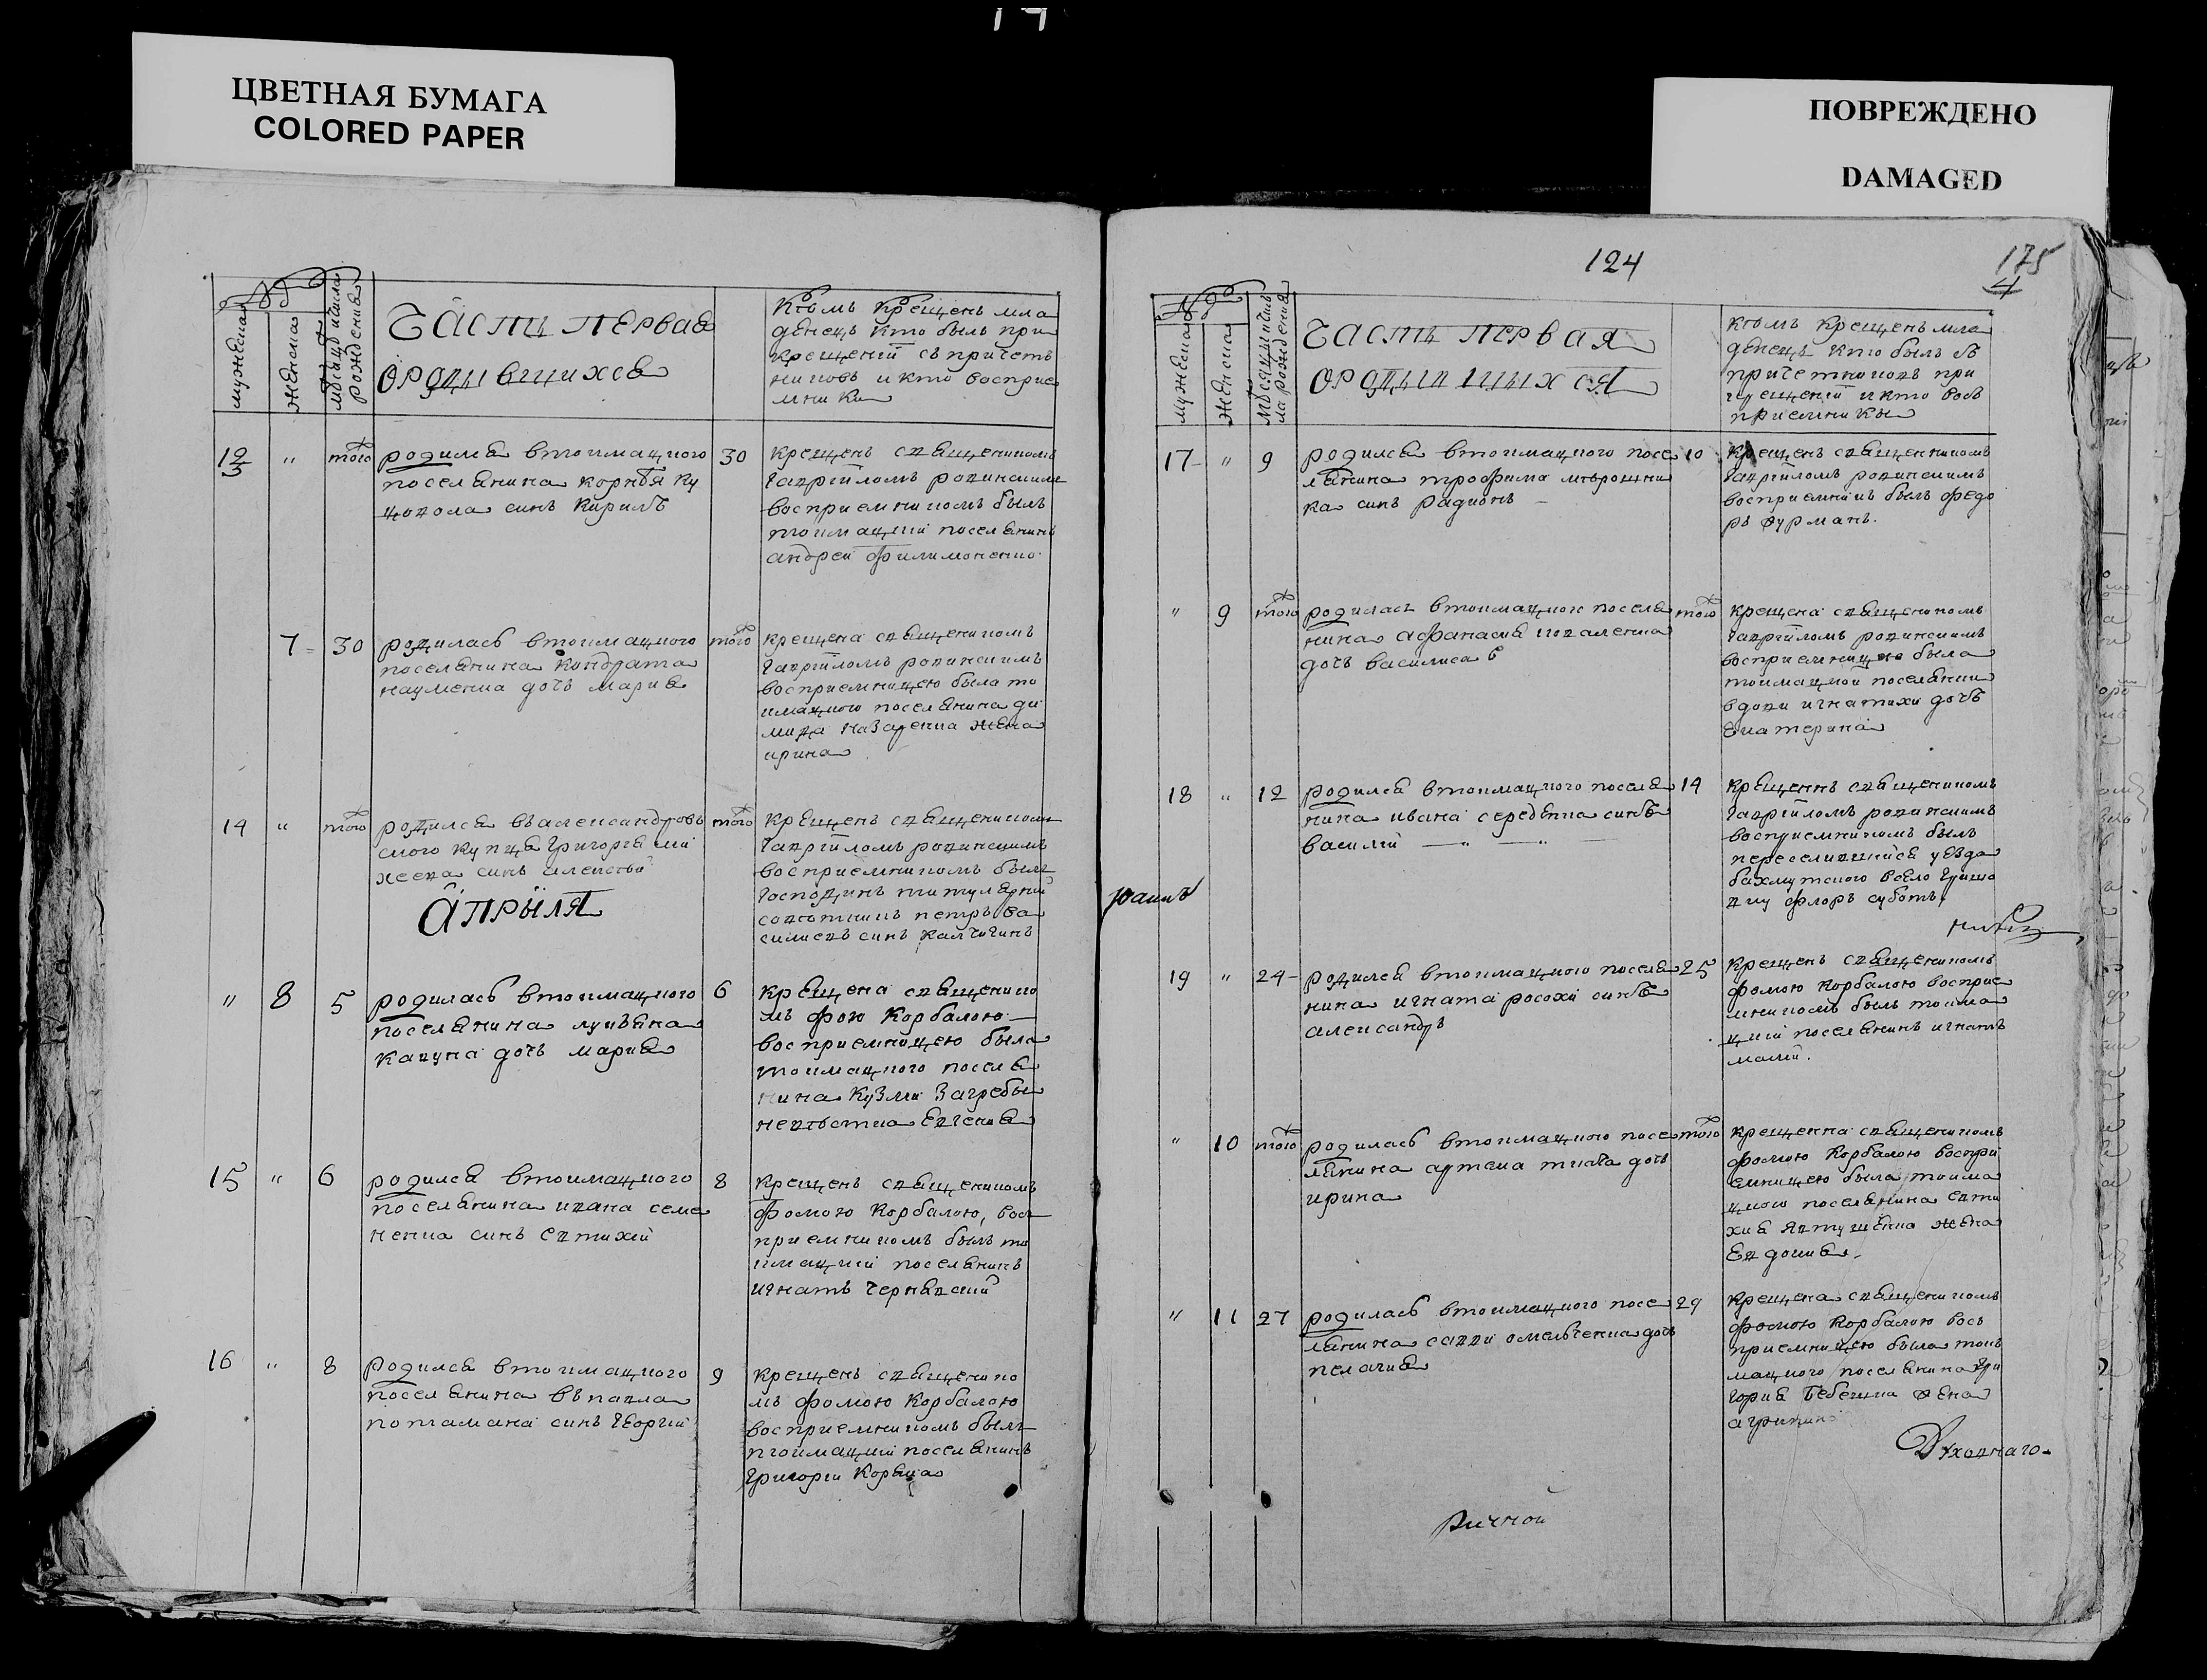 ЦВЕТНАЯ БУМАГА
COLORED PAPER
ПОВРЕЖДЕНО
DAMAGED
№
мужеска
женска
мѣсяцъ и числа
рожденія
Часть первая
о родившихся
Кѣмъ крещенъ мла
денецъ кто былъ при
крещеніи съ причет
никовъ и кто воспріе
мники
13 " того
родился втокмацкого
поселянина корнѣя ку
цовола синъ Кирилъ
30
крещенъ священикомъ
Гавріиломъ
воспріемникомъ былъ
токмацкій поселянинъ
андрей филимоненко
7 30
родилась втокмацкого
поселянина кондрата
науменка дочь марія
того
крещена священикомъ
Гавріиломъ
воспріемницею была то
кмацкого поселянина ди
мида назаренка жена
ирина
14 " того
родился въ александровъ
ского купца Григорія
синъ алексѣй
того
крещенъ священикомъ
Гавріиломъ
воспріемникомъ былъ
господинъ титулярній
совѣтникъ петръ ва
силіевъ синъ калчигинъ
Апрыля
" 8 5
родилась втокмацкого
поселянина лукьяна
капуна дочь марія
6
крещена священико
мъ фою Корбалою
воспріемницею была
токмацкого поселя
нина кузми Загребы
невѣстка Евгенія
15 " 6
родился втокмацкого
поселянина ивана семе
ненка синъ евтихій
8
крещенъ священикомъ
фомою Корбалою, вос
пріемникомъ былъ то
кмацкій поселянинъ
игнатъ чернявскій
16 " 8
родился втокмацкого
поселянина въ павла
синъ георгій
9
крещенъ священико
мъ фомою Корбалою
воспріемникомъ былъ
токмацкій поселянинъ
григорій
124
175
4
№
мужеска
женска
мѣсяцъ и чис
ла рожденія
Часть первая
о родившихся
кѣмъ крещенъ мла
денецъ кто былъ съ
причетниковъ при
крещеніи и кто вос
пріемники
17 " 9
родился втокмацкого посе
лянина трофима мирошни
ка синъ радионъ
10
крещенъ священникомъ
Гавріиломъ
воспріемникъ былъ федо
ръ фурманъ.
" 9 того
родилась втокмацкого поселя
нина афанасія коваленка
дочь василиса
того
крещена священикомъ
Гавріиломъ
воспріемницею была
токмацкой поселянки
вдови игнатихи дочъ
екатерина
18 " 12
родился втокмацкого поселя
нина ивана середенка синъ
василій
14
крещеннъ священикомъ
Гавріиломъ
воспріемникомъ былъ
переселившійся уезда
бахмутского всело гриша
вку флоръ суботъ
19 " 24
родился втокмацкого поселя
нина игната росохи синъ
александръ
25
крещенъ священикомъ
фомою Корбалою воспріе
мникомъ былъ токма
цкій поселянинъ игнатъ
малій.
" 10 того
родилась втокмацкого посе
лянина артема ткача дочь
ирина
того
крещенна священикомъ
фомою Корбалою воспри
емницею была токма
цкого поселянина евти
хия явтушенка жена
Евдокия.
" 11 27
родилась втокмацкого посе
лянина савви омельченка дочь
пелагия
29
крещена священикомъ
фомою Корбалою вос
приемницею была ток
мацкого поселянина гри
горія жена
агрипина